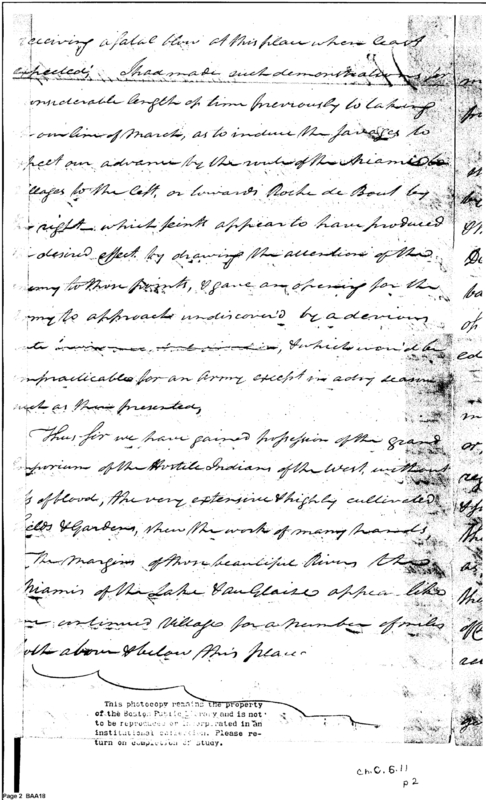 receiving a fatal blow at this place when least
expected; I had made such demonstrations for
considerable length of time previously to taking
our line of March, as to induce the Savages to
expect our advance by the route of the Miamis
villages to the left, or towards Roche de Bout by
right which feints appear to have produced
desired effect by drawing the attention of the
enemy to those points, & gave an opening for the
Army to approach undiscover'd by a devious
& which wou'd be
impracticable for an Army except in a dry season
such as then presented,
Thus sir we have gained possession of the grand
emporium of the Hostile Indians of the West, without
loss of blood, the very extensive & highly cultivated
fields & Gardens, shew the work of many hands,
The Margins of those beautiful Rivers the
Miamis of the Lake & au Glaise appear like
one continued Village for a number of miles
both above & below this place
This photocopy remains the property
of the Boston Public Library and is not
to be reproduced or incorporated in an
institutional collection. Please re-
turn on completion of study.
Ch.C.5.11
p 2
Page 2 BAA18